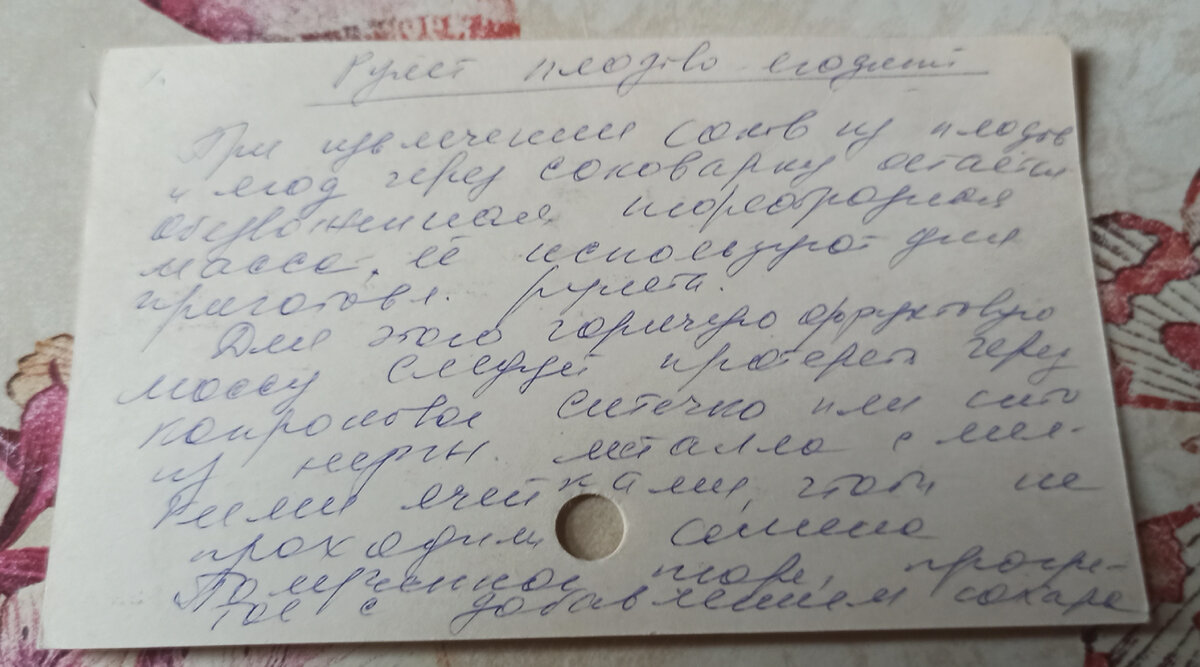 Рулет плодово-ягодный
При извлечении соков из плодов
и ягод через соковарку остаётся
обезвоженная пюреобразная
масса, её используют для
приготовл. рулета.
Для этого горячую фруктовую
массу следует протереть через
капроновое ситечко или сито
из нерж. металла с мел-
кими ячейками, чтобы не
проходили семена
Полученное пюре, прогре-
тое с добавлением сахара